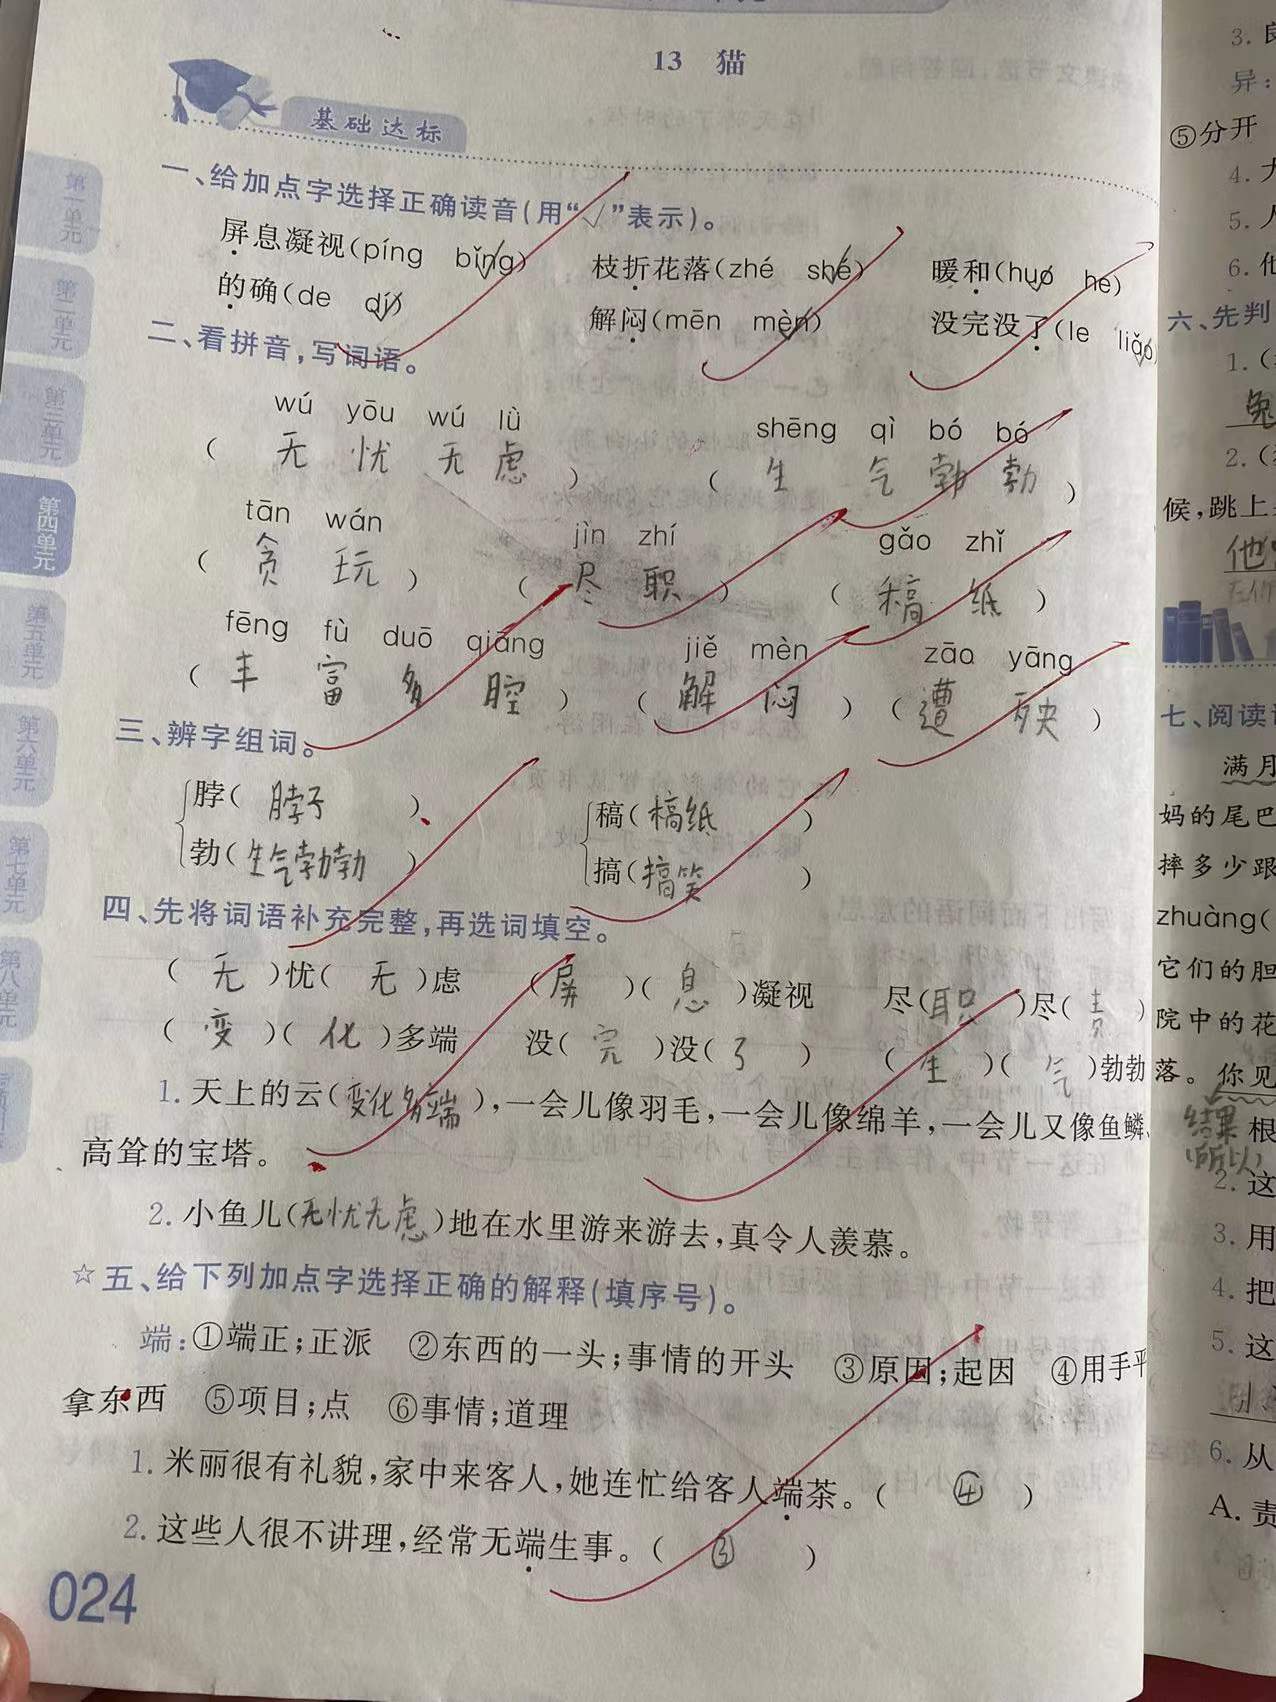 13 猫
基础达标
一、给加点字选择正确读音(用“√”表示)。
屏息凝视(píng bǐng) 枝折花落(zhé shé) 暖和(huo he)
的确(de dí) 解闷(mēn mèn) 没完没了(le liǎo
二、看拼音,写词语。
wú yōu wú lǜ shēng qì bó bó
( 无 忧 无 虑 ) ( 生 气 勃 勃 )
tān wán jìn zhí gǎo zhǐ
( 贪 玩 ) ( 尽 职 ) ( 稿 纸 )
fēng fù duō qiāng jiě mèn zāo yāng
( 丰 富 多 腔 ) ( 解 闷 ) ( 遭 殃 )
三、辨字组词。
脖( 脖子 ) 稿( 稿纸 )
勃( 生气勃勃 ) 搞( 搞笑 )
四、先将词语补充完整,再选词填空。
( 无 )忧( 无 )虑 ( 屏 )( 息 )凝视 尽( 职 )尽( 责 )
( 变 )( 化 )多端 没( 完 )没( 了 ) ( 生 )( 气 )勃勃
1. 天上的云( 变化多端 ),一会儿像羽毛,一会儿像绵羊,一会儿又像鱼鳞、
高耸的宝塔。
2. 小鱼儿( 无忧无虑 )地在水里游来游去,真令人羡慕。
☆五、给下列加点字选择正确的解释(填序号)。
端:①端正;正派 ②东西的一头;事情的开头 ③原因;起因 ④用手平
拿东西 ⑤项目;点 ⑥事情;道理
1. 米丽很有礼貌,家中来客人,她连忙给客人端茶。( ④ )
2. 这些人很不讲理,经常无端生事。( ③ )
024
第一单元
第二单元
第三单元
第四单元
第五单元
第六单元
第七单元
第八单元
3.
异:
⑤分开
4.
5.
6.
六、先判
1.(
兔
2.(
候,跳上
他
七、阅读
满月
妈的尾巴
摔多少跟
zhuàng(
它们的胆
院中的花
落。你见
结果 根
(所以)
2. 这
3. 用
4. 把
5. 这
6. 从
A. 责